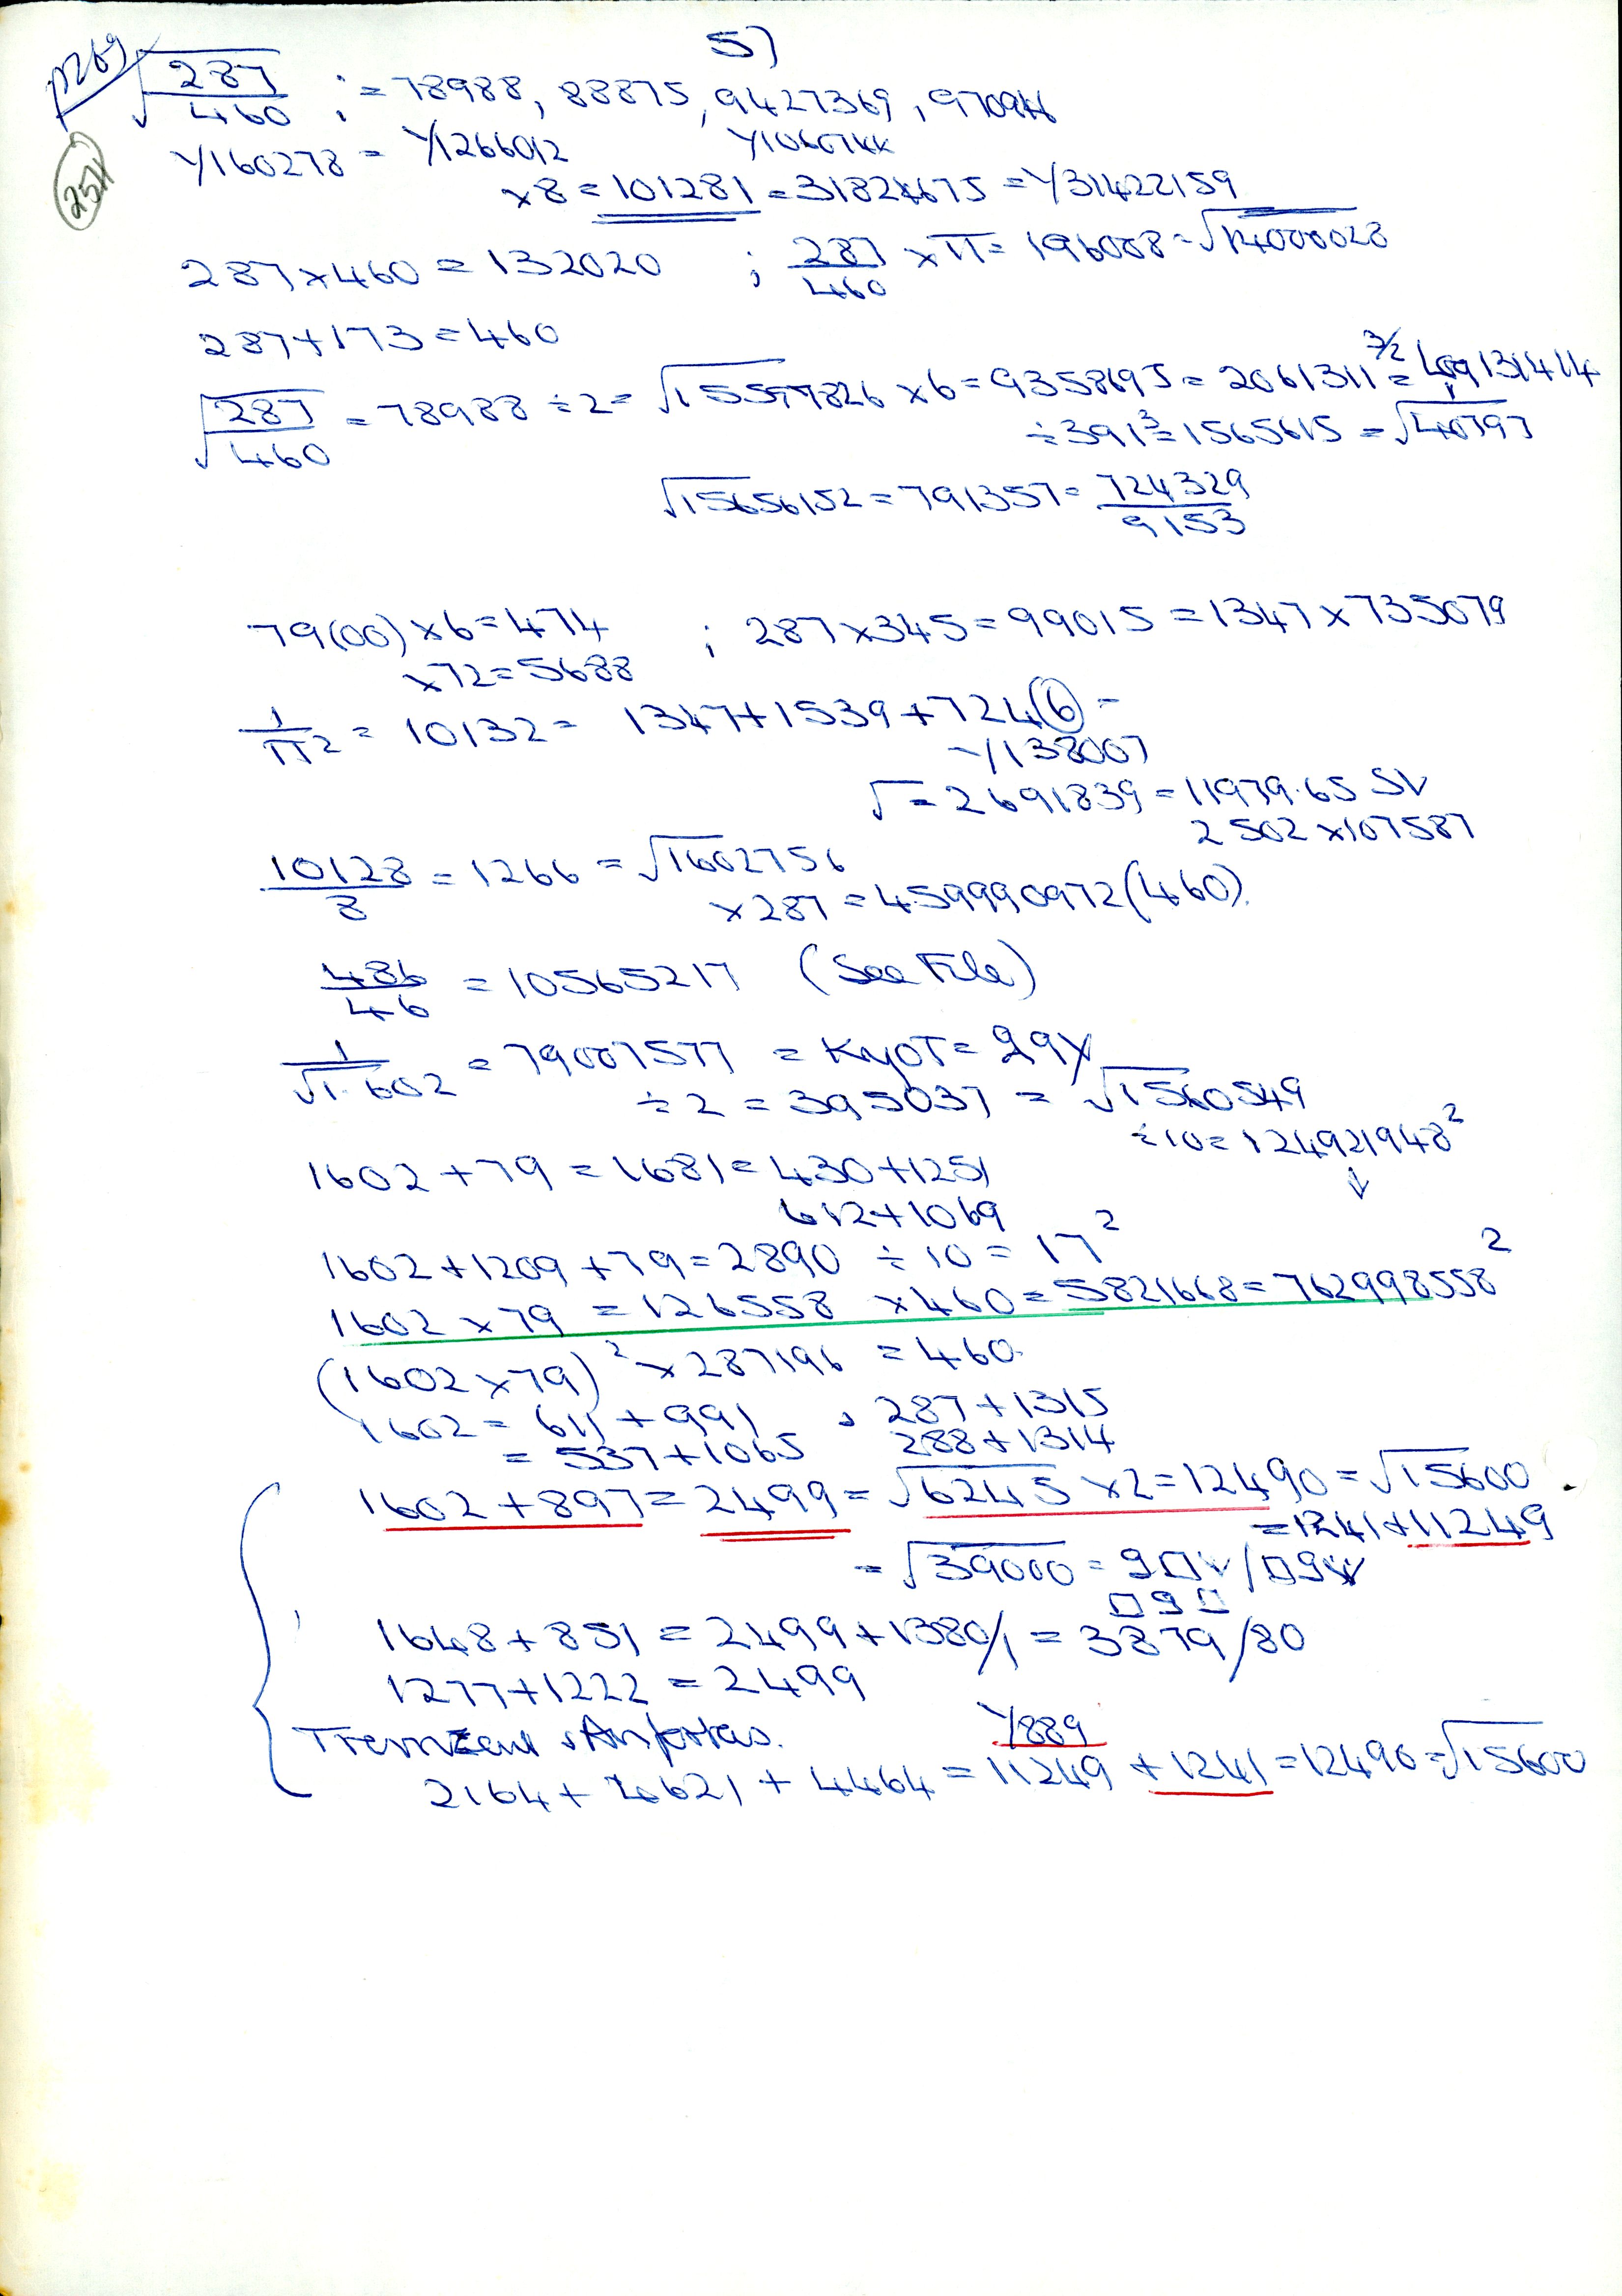 57
p269
√287/460 ; = 78988, 88875, 9427369, 970946
251
Y160278 = Y1266012 Y10607
×8 = 101281 = 31824675 = Y31422159
287×460 = 132020 ; 287/460 ×π = 196008 = √14000028
287+173 = 460
√287/460 = 78988 ÷2 = √15597826 ×6 = 9358695 = 2061311 3/2 =
÷391³ = 1565615 = √40797
√15656152 = 791357 = 724329/9153
79(00)×6 = 474 ; 287×345 = 99015 = 1347×735079
×72 = 5688
1/π² = 10132 = 1347+1539+724(6) =
Y138007
√ = 2691839 = 11979.65 SV
2502×107587
10128/8 = 1266 = √1602756
×287 = 459990972(460).
486/46 = 10565217 (See File)
1/√1.602 = 79007577 = KyoT = 29Y
÷2 = 395037 = √1560549
÷10 = 124921948²
1602+79 = 1681 = 430+1251
↓
612+1069
1602+1209+79 = 2890 ÷10 = 17²
1602×79 = 126558 ×460 = 5821668 = 762998558²
(1602×79)² × 287196 = 460.
1602 = 611+991 , 287+1315
= 537+1065 288+1314
1602+897 = 2499 = √6245 ×2 = 12490 = √15600
= 1241+11249
= √39000 =
1648+851 = 2499+1380/1 = 3879/80
1277+1222 = 2499
Y889
2164+4621+4464 = 11249+1241 = 12490 = √15600